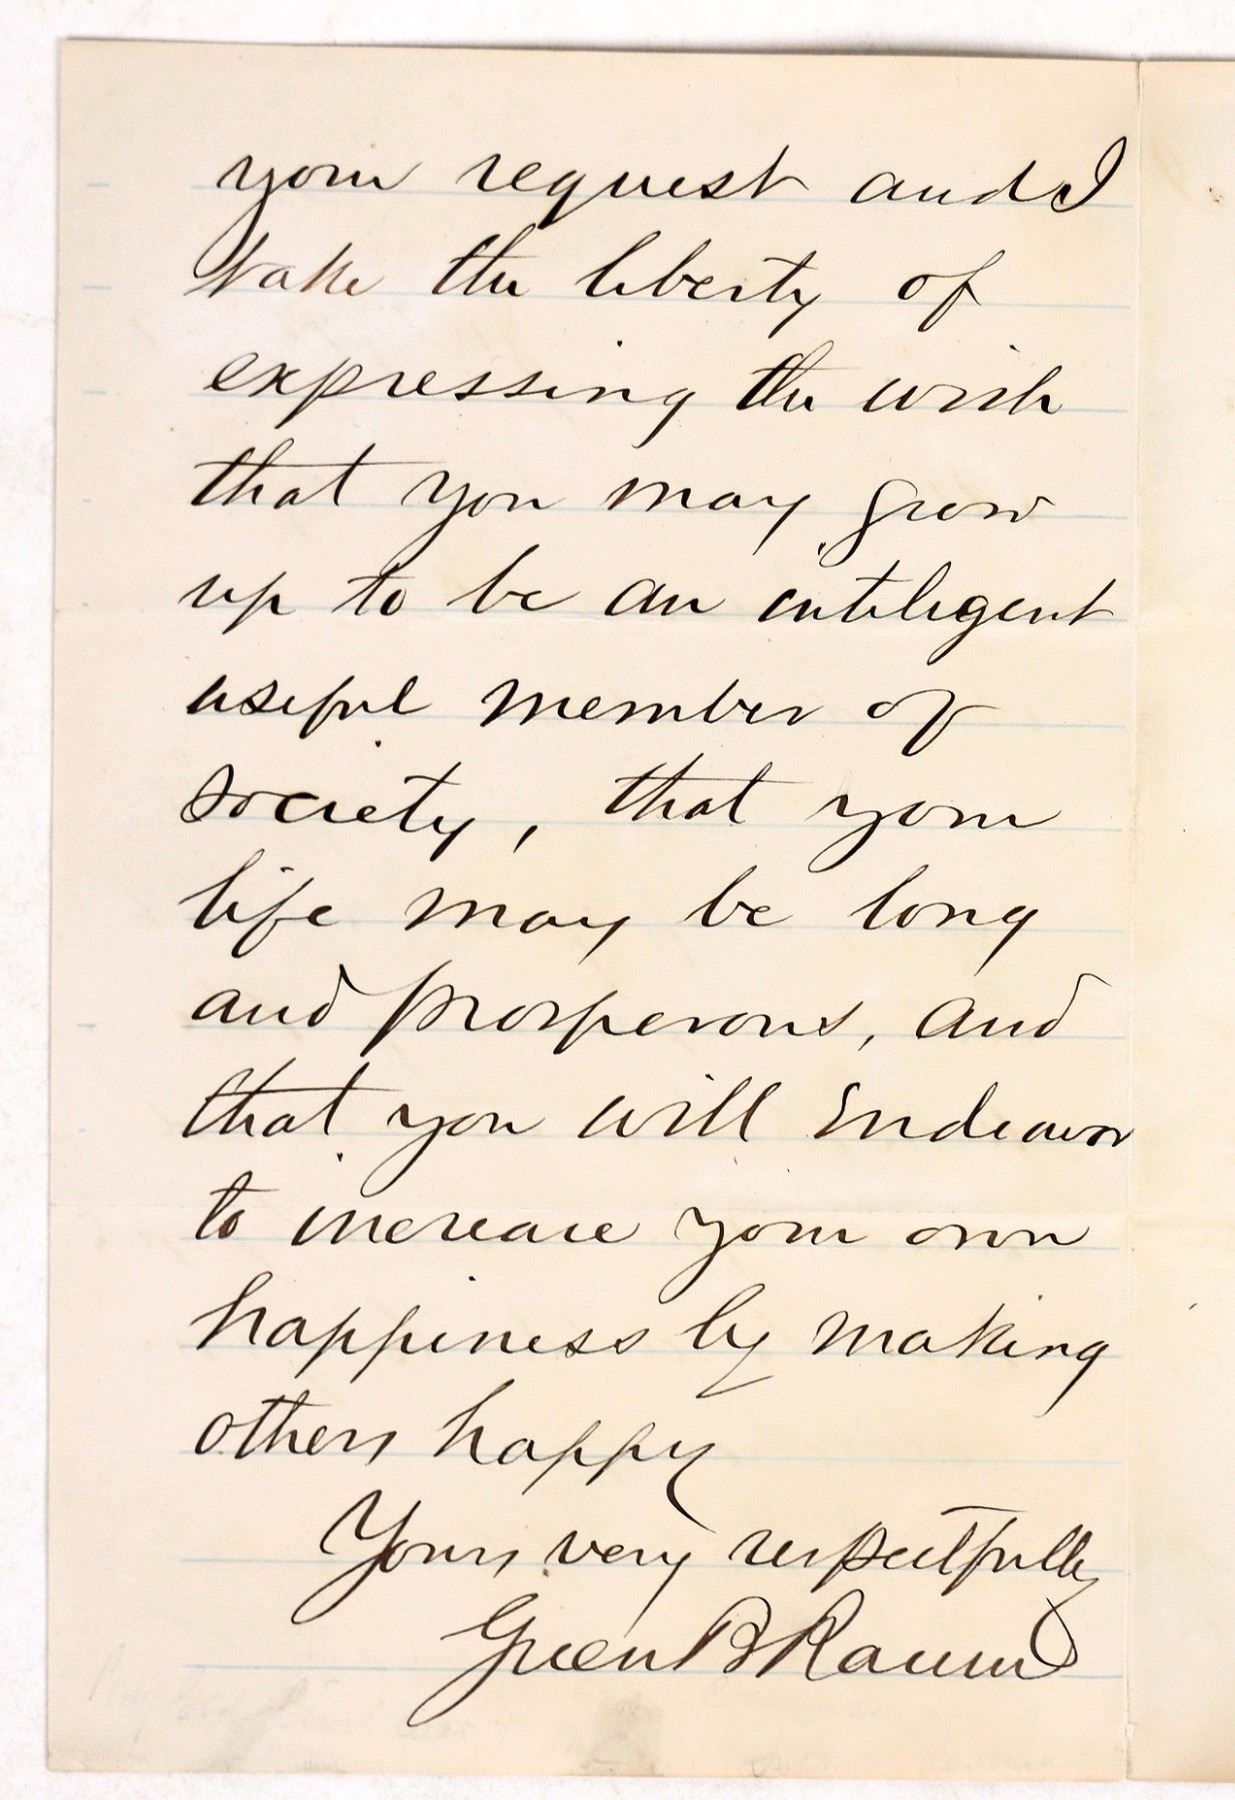 your request and I
take the liberty of
expressing the wish
that you may grow
up to be an inteligent
useful member of
society, that your
life may be long
and prosperous, and
that you will endeavor
to increase your own
happiness by making
others happy
Yours very respectfully
Green B Raum